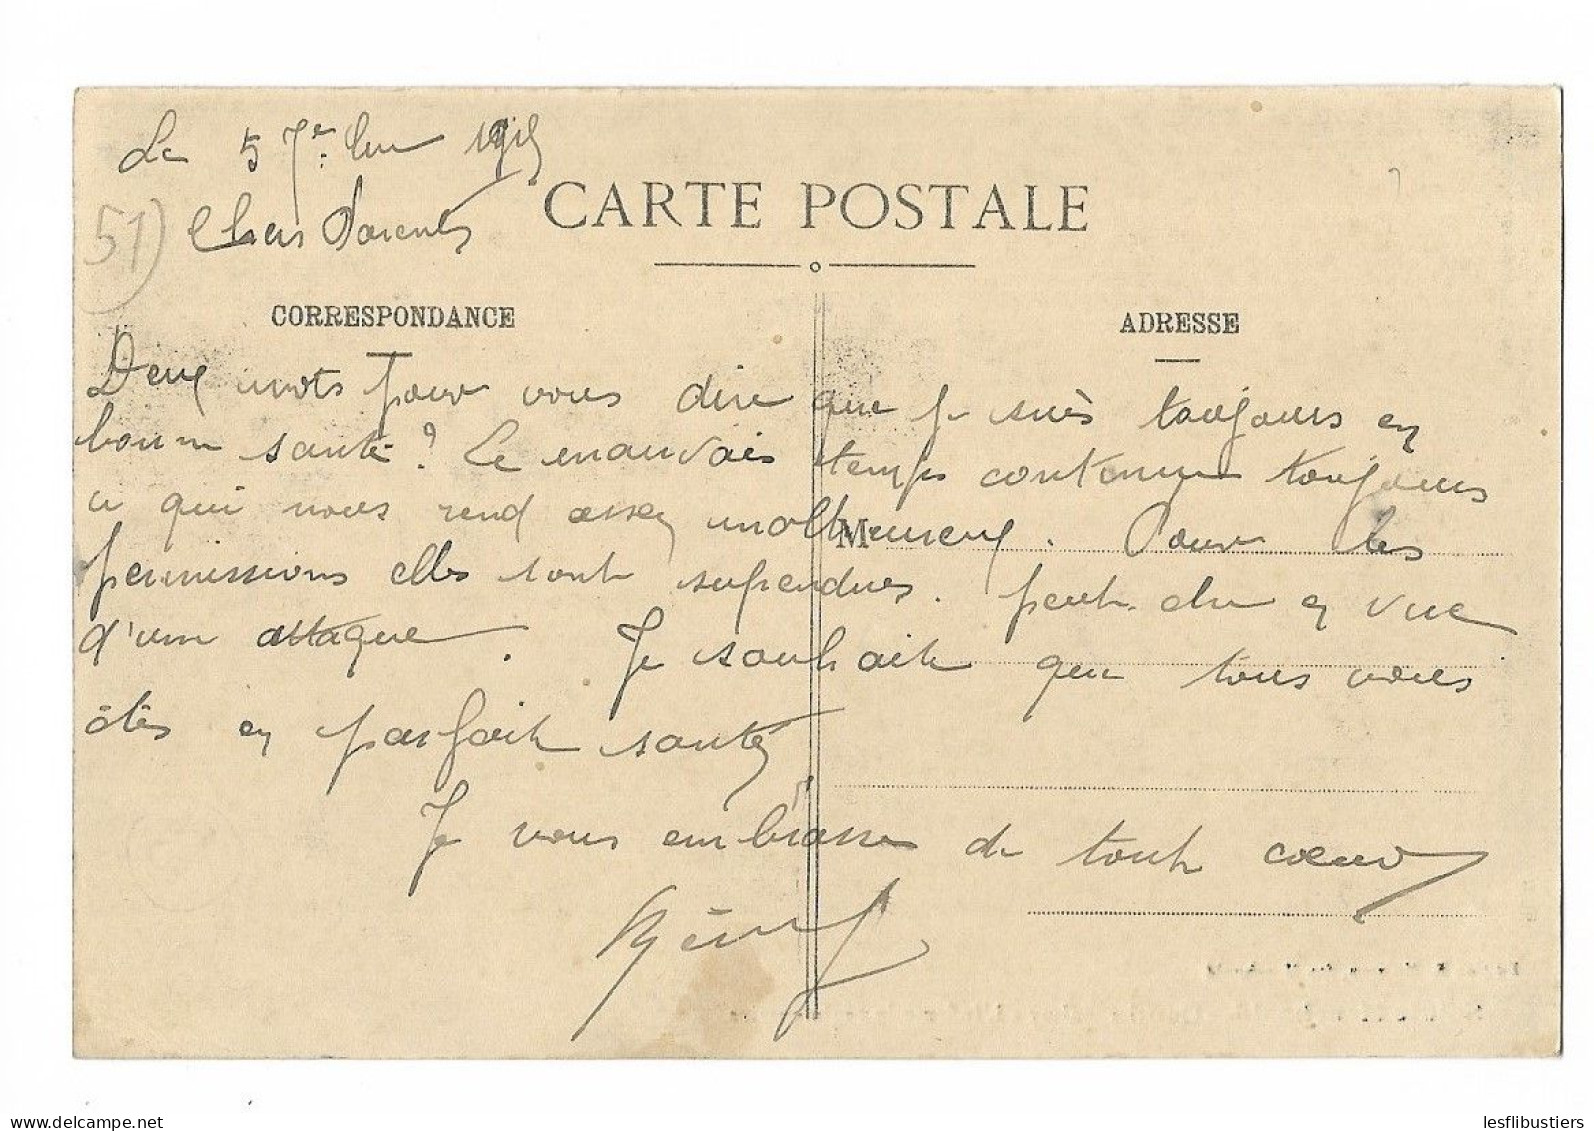 Le 5 7e:bre 1915
51)
Chers Parents
CARTE POSTALE
CORRESPONDANCE
ADRESSE
Deux mots pour vous dire que je suis toujours en
bonne santé? Le mauvais temps continue toujours
ce qui nous rend assez malheureux. Pour les
M
permissions elles sont supendues. peut-etre en vue
d'une attaque. Je souhaite que tous vous
êtes en parfaite santé
Je vous embrasse de tout coeur
lesflibustiers